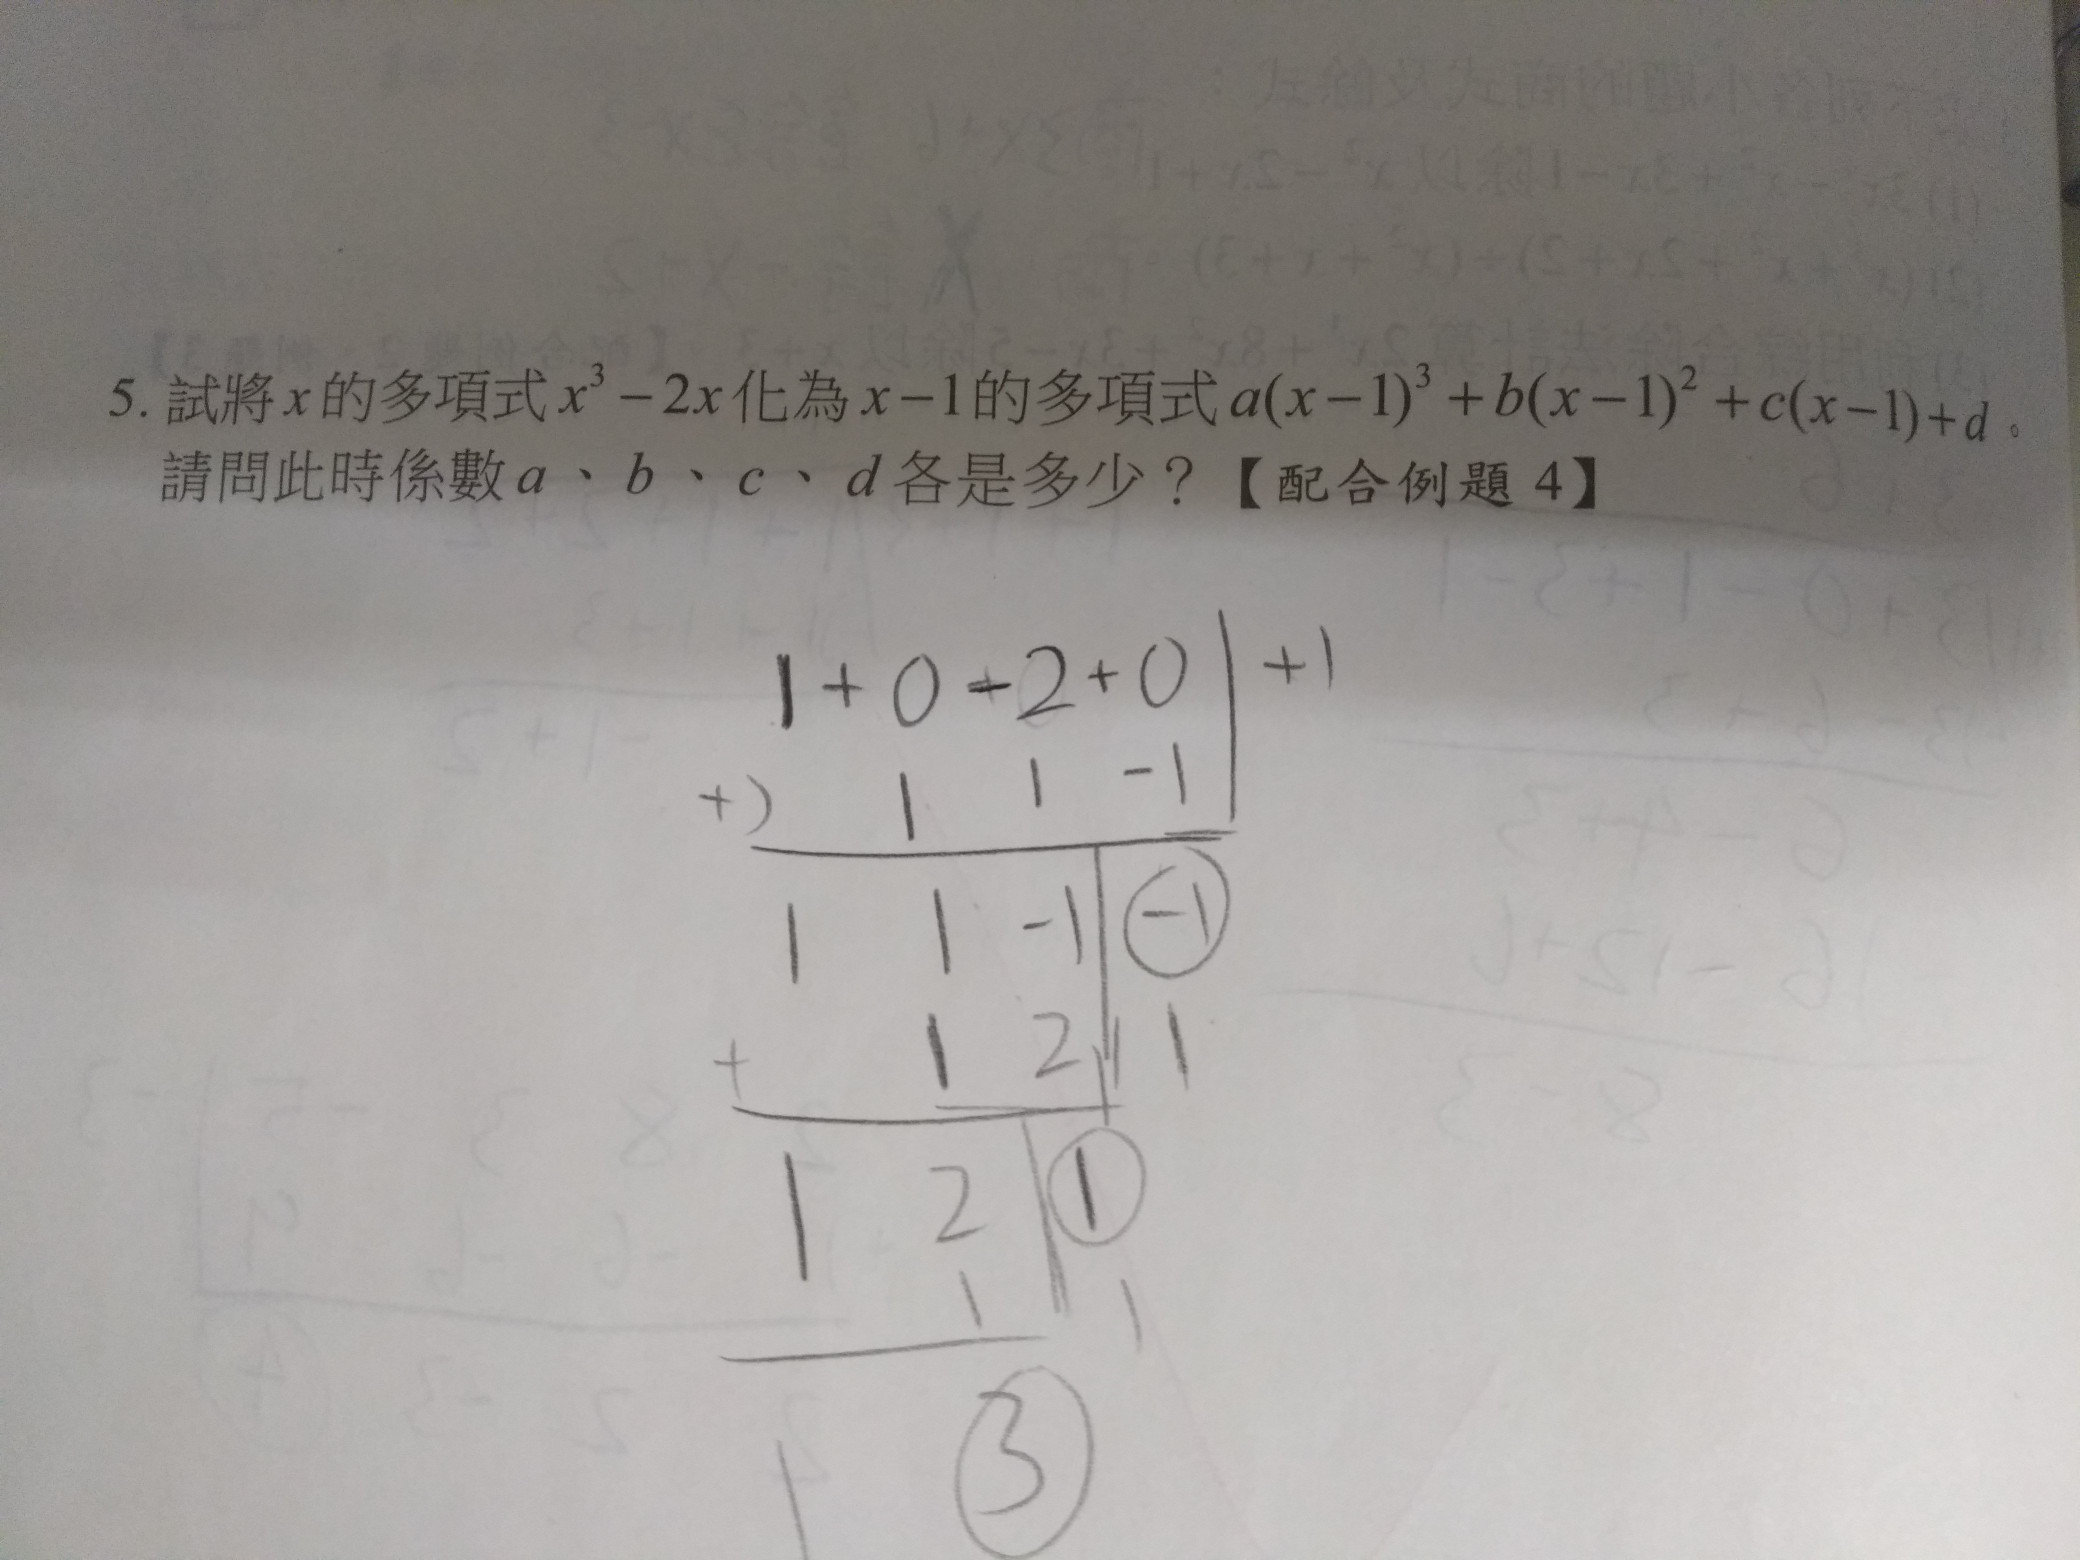 5. 試將x的多項式x³-2x化為x-1的多項式a(x-1)³+b(x-1)²+c(x-1)+d。
請問此時係數a、b、c、d各是多少?【配合例題4】
1+0-2+0 +1
+) 1 1 -1
1 1 -1 -1
+ 1 2 1
1 2 1
1 1
1 3